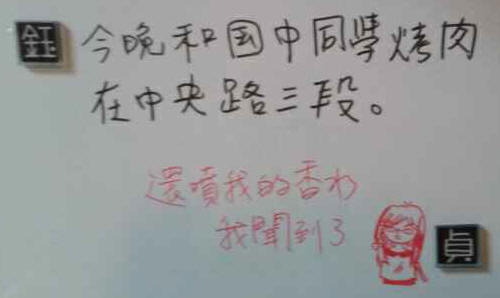 鈺
今晚和国中同學烤肉
在中央路三段。
還噴我的香水
我聞到了
貞